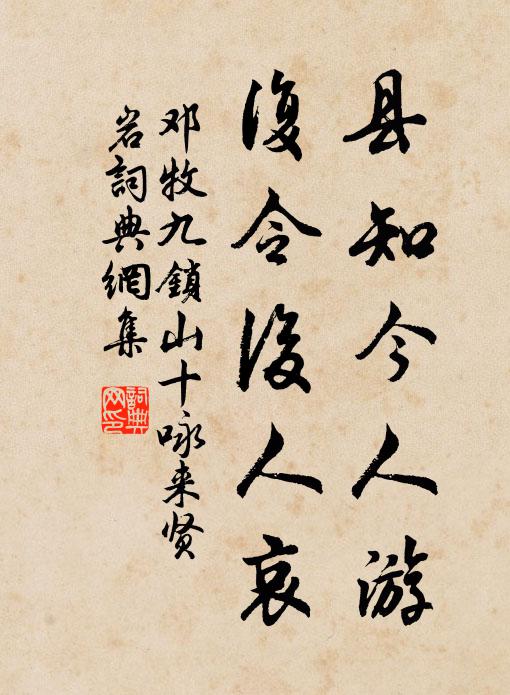 县知今人游
復令後人哀
邓牧九鎖山十咏来贤
岩詞典網集
詞典
网印